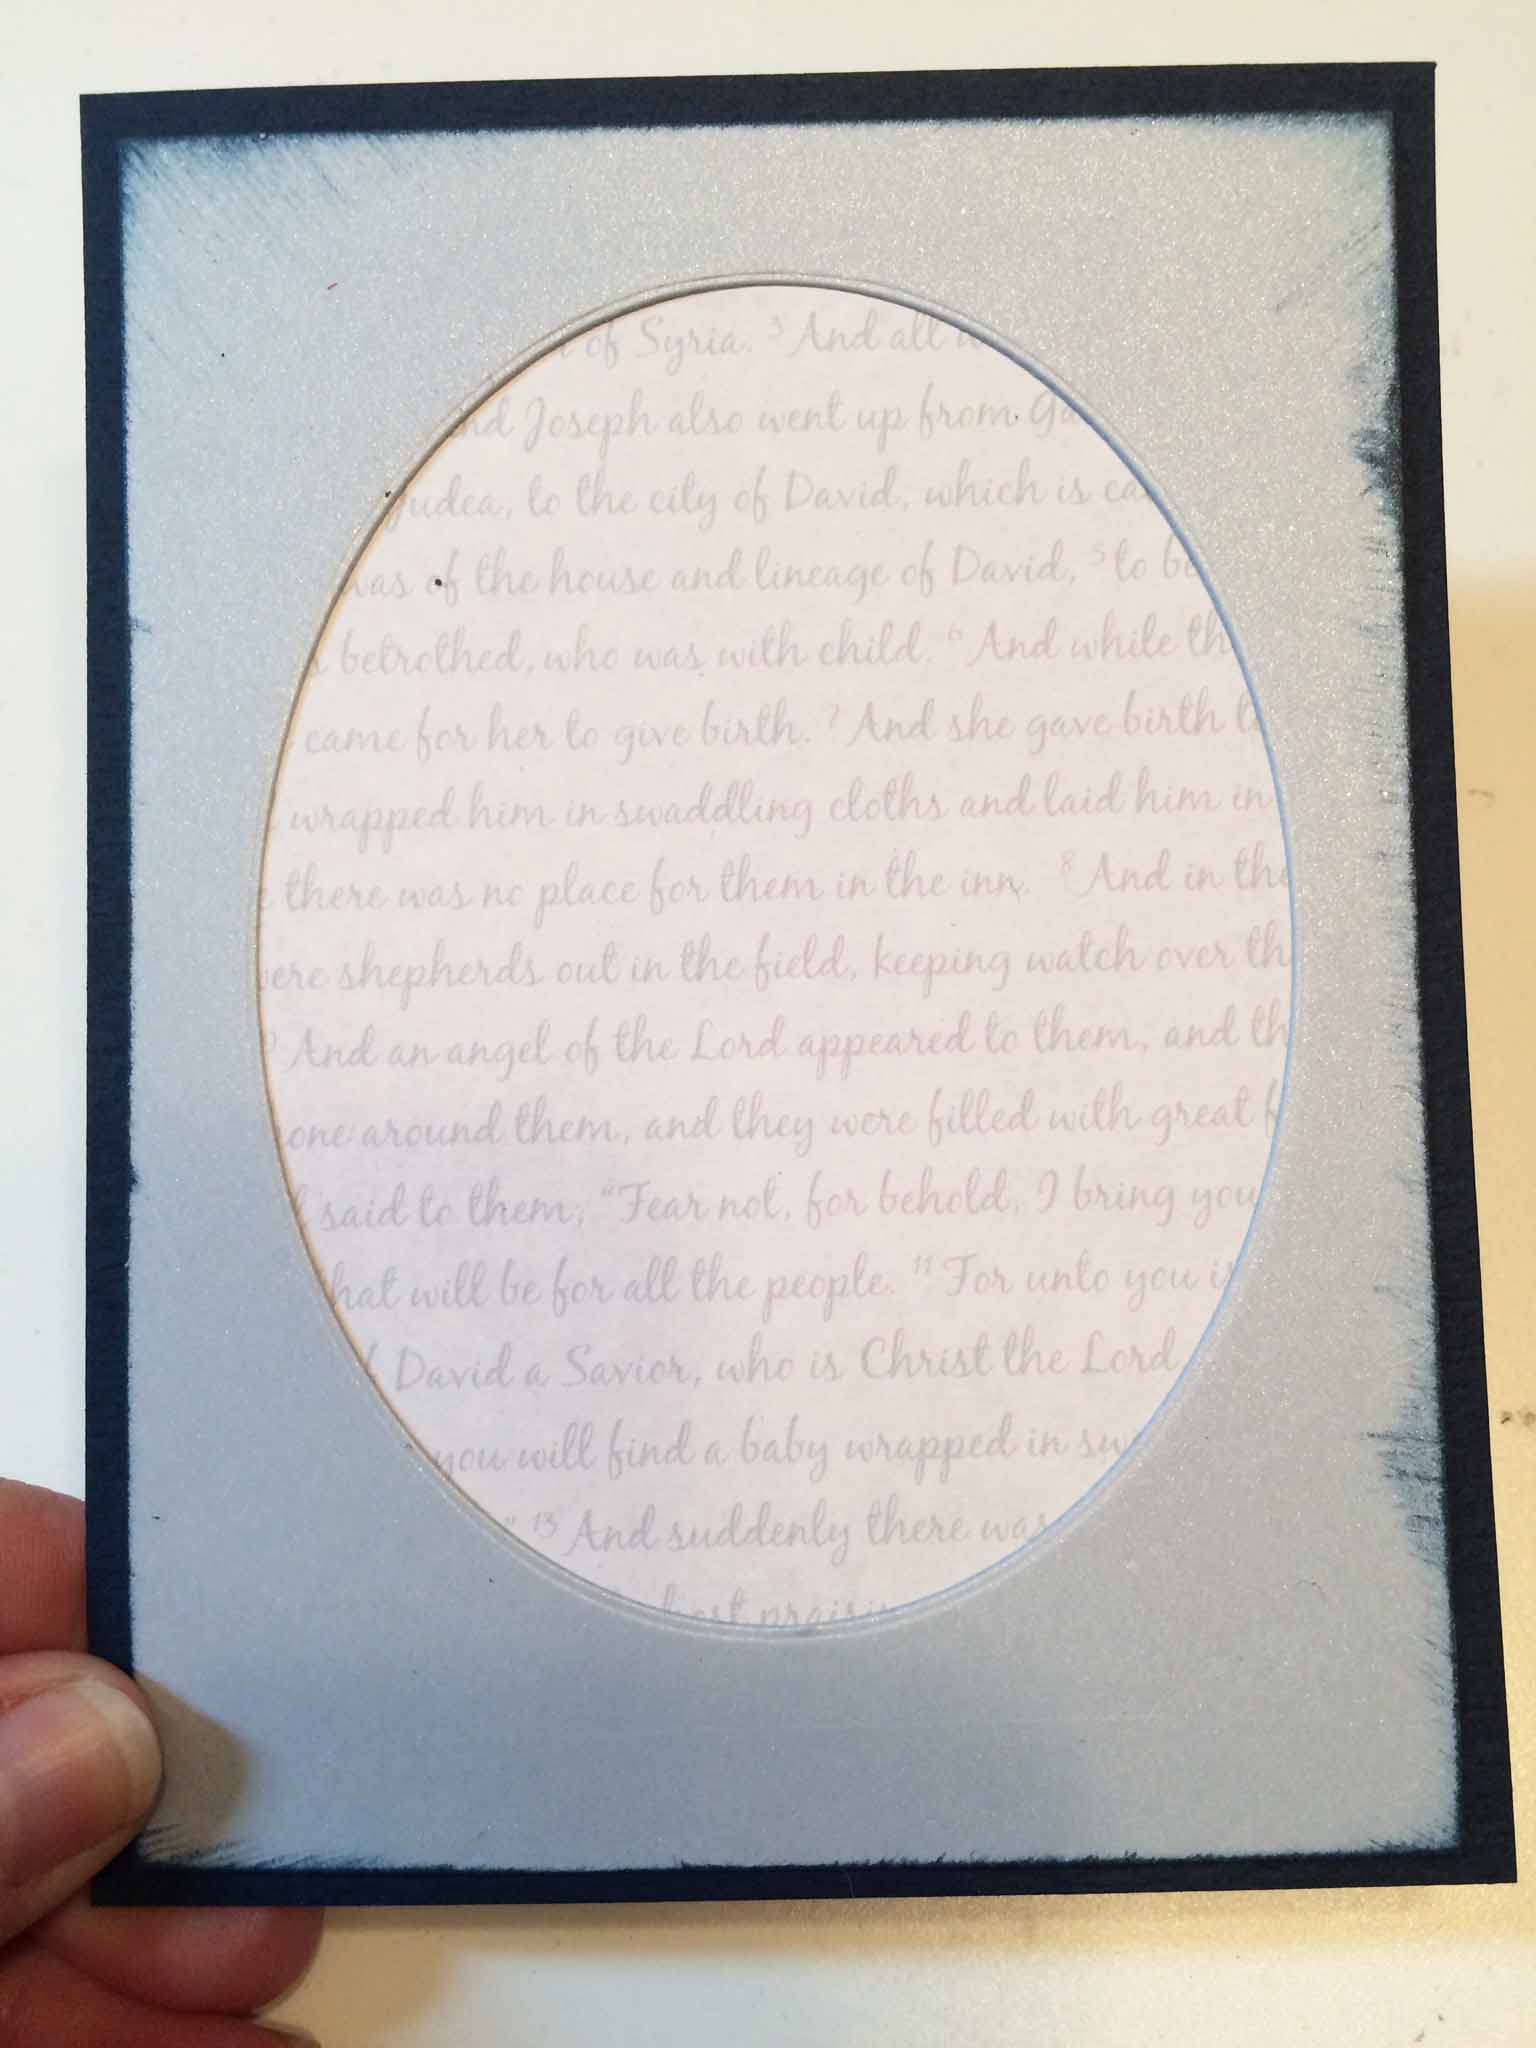 of Syria. 3 And all
Joseph also went up from
Judea, to the city of David, which is
was of the house and lineage of David, 5 to
betrothed, who was with child. 6 And while
came for her to give birth. 7 And she gave birth
wrapped him in swaddling cloths and laid him in
there was no place for them in the inn. 8 And in the
shepherds out in the field, keeping watch over
And an angel of the Lord appeared to them, and
around them, and they were filled with great
said to them, “Fear not, for behold, I bring you
will be for all the people. 11 For unto you is
David a Savior, who is Christ the Lord
you will find a baby wrapped in
” 13 And suddenly there was